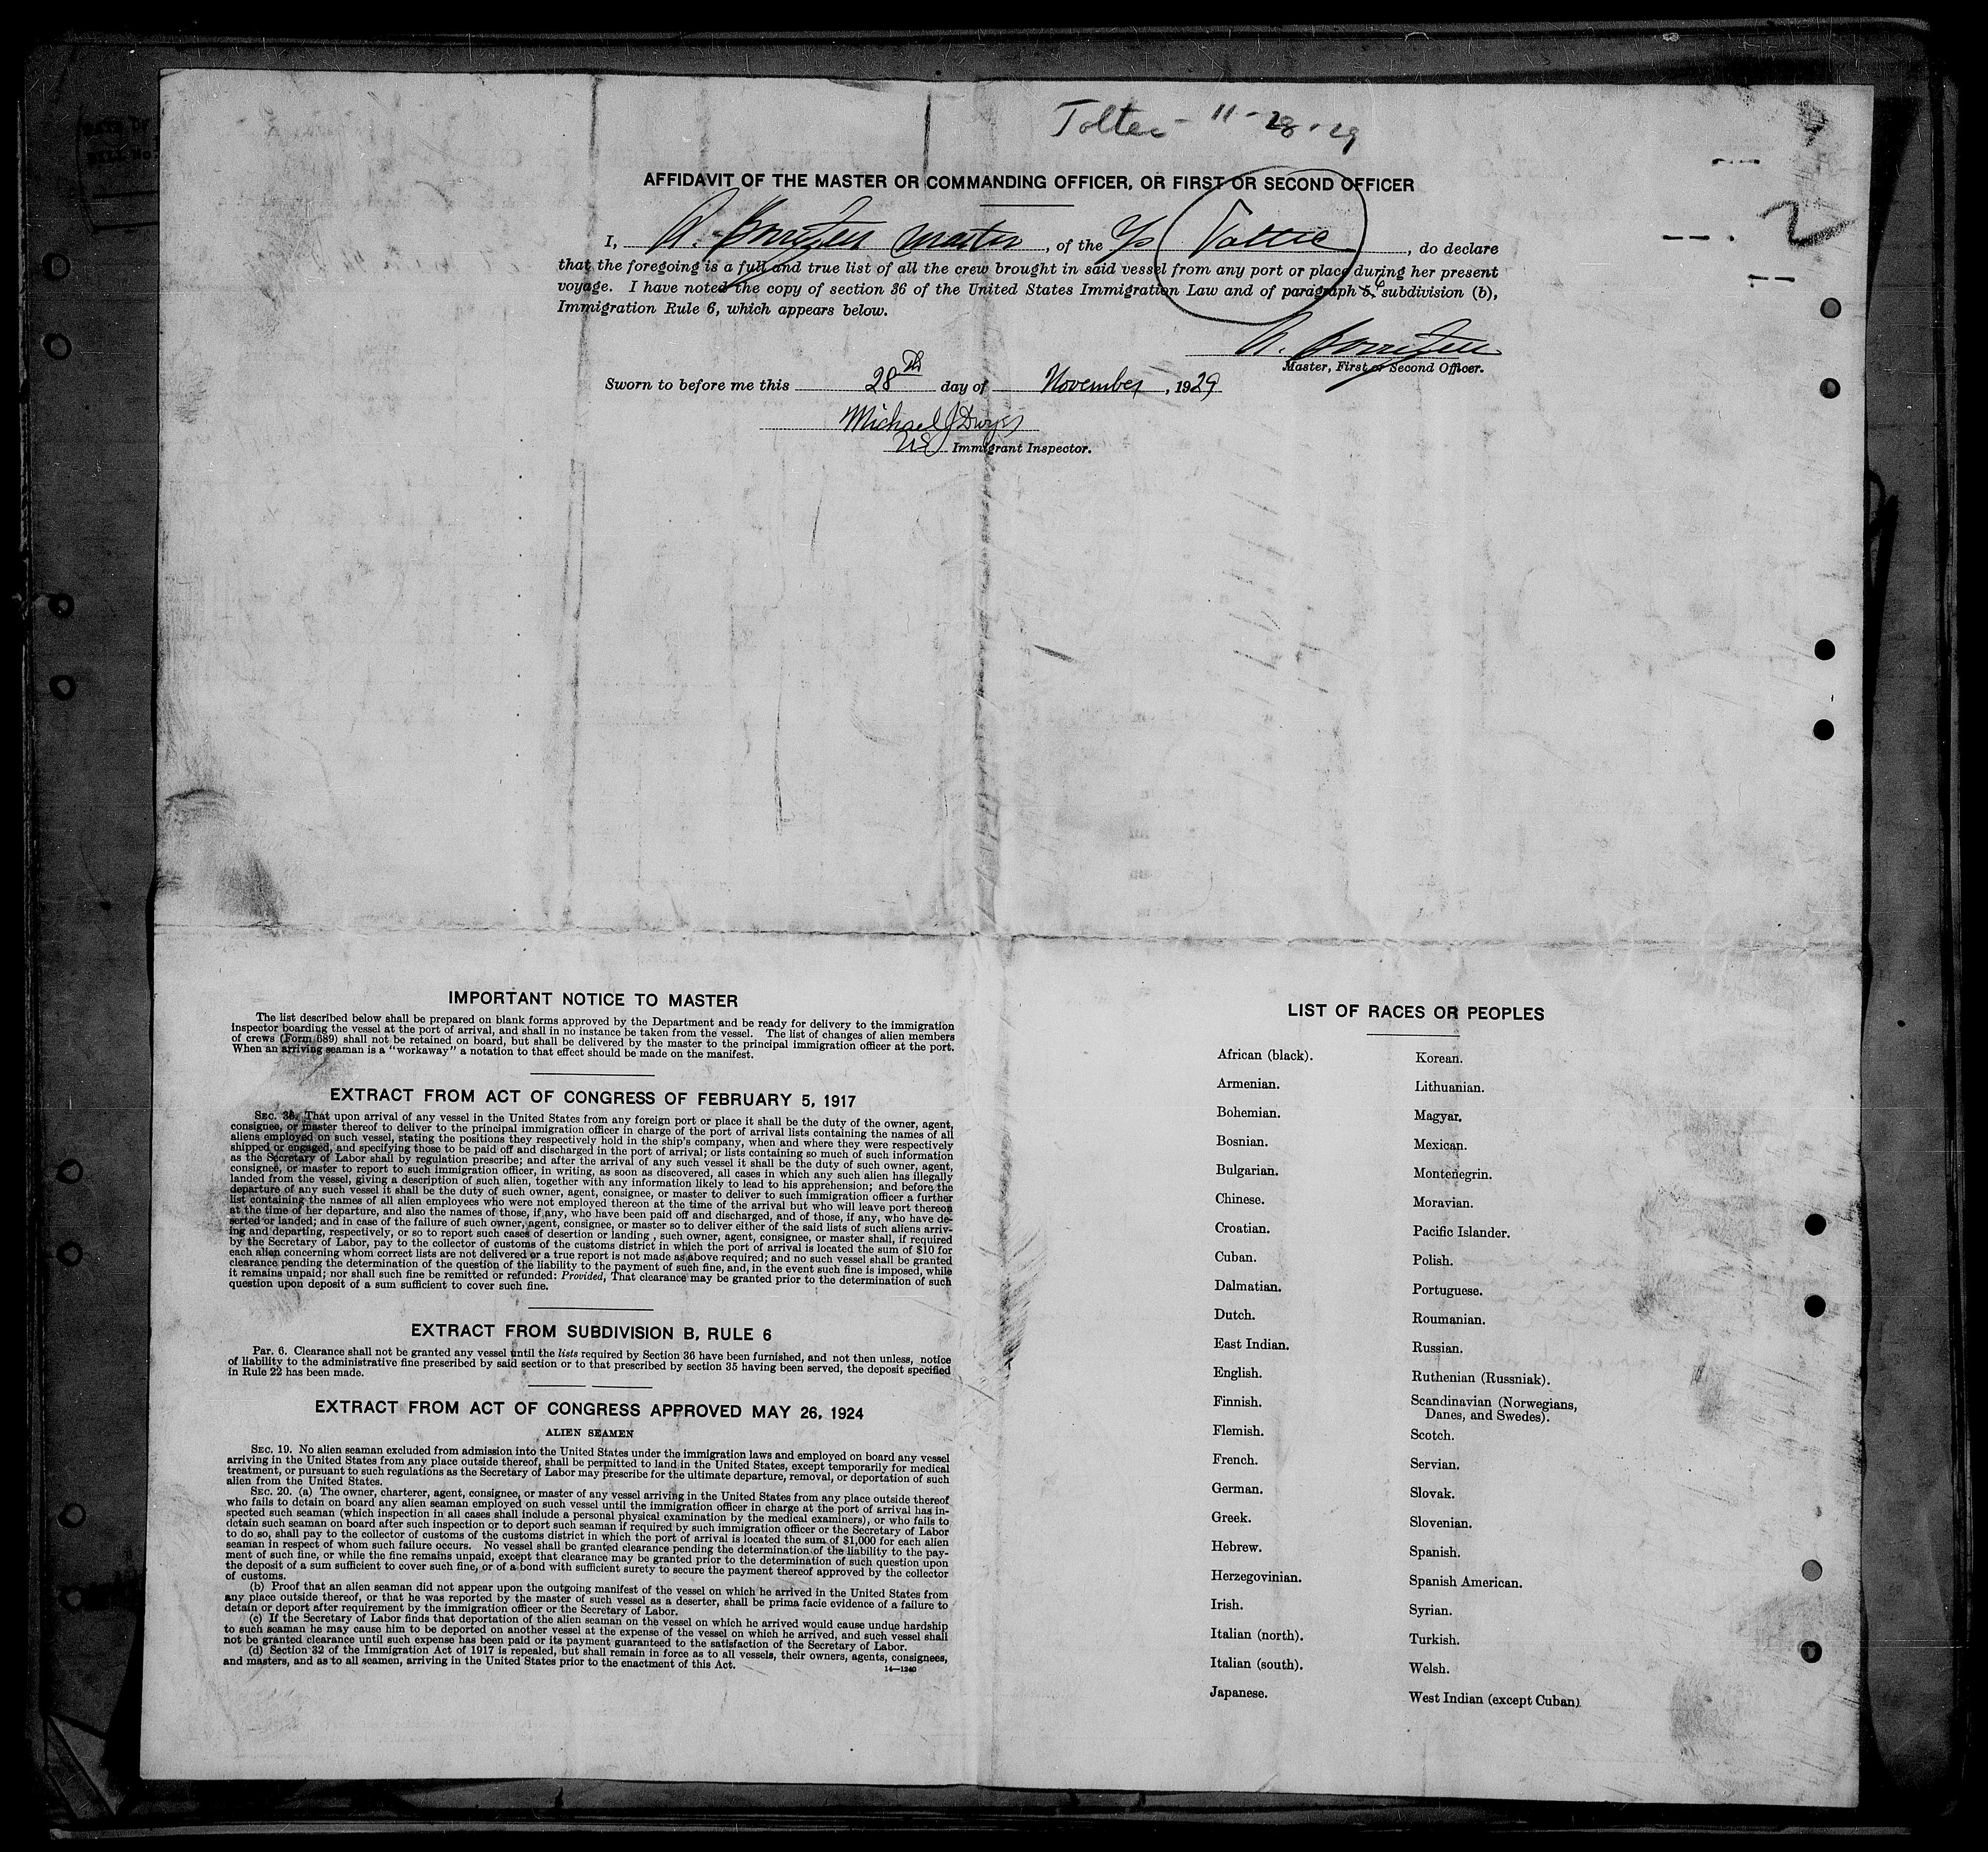 11-28-29
AFFIDAVIT OF THE MASTER OR COMMANDING OFFICER, OR FIRST OR SECOND OFFICER
I, master, of the , do declare
that the foregoing is a full and true list of all the crew brought in said vessel from any port or place during her present
voyage. I have noted the copy of section 36 of the United States Immigration Law and of paragraph 5, 6 subdivision (b),
Immigration Rule 6, which appears below.
Master, First or Second Officer.
Sworn to before me this 28th day of November, 1929
Michael J Dwyer
US Immigrant Inspector.
2
IMPORTANT NOTICE TO MASTER
The list described below shall be prepared on blank forms approved by the Department and be ready for delivery to the immigration
inspector boarding the vessel at the port of arrival, and shall in no instance be taken from the vessel. The list of changes of alien members
of crews (Form 689) shall not be retained on board, but shall be delivered by the master to the principal immigration officer at the port.
When an arriving seaman is a "workaway" a notation to that effect should be made on the manifest.
EXTRACT FROM ACT OF CONGRESS OF FEBRUARY 5, 1917
SEC. 36. That upon arrival of any vessel in the United States from any foreign port or place it shall be the duty of the owner, agent,
consignee, or master thereof to deliver to the principal immigration officer in charge of the port of arrival lists containing the names of all
aliens employed on such vessel, stating the positions they respectively hold in the ship's company, when and where they were respectively
shipped or engaged, and specifying those to be paid off and discharged in the port of arrival; or lists containing so much of such information
as the Secretary of Labor shall by regulation prescribe; and after the arrival of any such vessel it shall be the duty of such owner, agent,
consignee, or master to report to such immigration officer, in writing, as soon as discovered, all cases in which any such alien has illegally
landed from the vessel, giving a description of such alien, together with any information likely to lead to his apprehension; and before the
departure of any such vessel it shall be the duty of such owner, agent, consignee, or master to deliver to such immigration officer a further
list containing the names of all alien employees who were not employed thereon at the time of the arrival but who will leave port thereon
at the time of her departure, and also the names of those, if any, who have been paid off and discharged, and of those, if any, who have de-
serted or landed; and in case of the failure of such owner, agent, consignee, or master so to deliver either of the said lists of such aliens arriv-
ing and departing, respectively, or so to report such cases of desertion or landing , such owner, agent, consignee, or master shall, if required
by the Secretary of Labor, pay to the collector of customs of the customs district in which the port of arrival is located the sum of $10 for
each alien concerning whom correct lists are not delivered or a true report is not made as above required; and no such vessel shall be granted
clearance pending the determination of the question of the liability to the payment of such fine, and, in the event such fine is imposed, while
it remains unpaid; nor shall such fine be remitted or refunded: Provided, That clearance may be granted prior to the determination of such
question upon deposit of a sum sufficient to cover such fine.
EXTRACT FROM SUBDIVISION B, RULE 6
Par. 6. Clearance shall not be granted any vessel until the lists required by Section 36 have been furnished, and not then unless, notice
of liability to the administrative fine prescribed by said section or to that prescribed by section 35 having been served, the deposit specified
in Rule 22 has been made.
EXTRACT FROM ACT OF CONGRESS APPROVED MAY 26, 1924
ALIEN SEAMEN
SEC. 19. No alien seaman excluded from admission into the United States under the immigration laws and employed on board any vessel
arriving in the United States from any place outside thereof, shall be permitted to land in the United States, except temporarily for medical
treatment, or pursuant to such regulations as the Secretary of Labor may prescribe for the ultimate departure, removal, or deportation of such
alien from the United States.
SEC. 20. (a) The owner, charterer, agent, consignee, or master of any vessel arriving in the United States from any place outside thereof
who fails to detain on board any alien seaman employed on such vessel until the immigration officer in charge at the port of arrival has in-
spected such seaman (which inspection in all cases shall include a personal physical examination by the medical examiners), or who fails to
detain such seaman on board after such inspection or to deport such seaman if required by such immigration officer or the Secretary of Labor
to do so, shall pay to the collector of customs of the customs district in which the port of arrival is located the sum of $1,000 for each alien
seaman in respect of whom such failure occurs. No vessel shall be granted clearance pending the determination of the liability to the pay-
ment of such fine, or while the fine remains unpaid, except that clearance may be granted prior to the determination of such question upon
the deposit of a sum sufficient to cover such fine, or of a bond with sufficient surety to secure the payment thereof approved by the collector
of customs.
(b) Proof that an alien seaman did not appear upon the outgoing manifest of the vessel on which he arrived in the United States from
any place outside thereof, or that he was reported by the master of such vessel as a deserter, shall be prima facie evidence of a failure to
detain or deport after requirement by the immigration officer or the Secretary of Labor.
(c) If the Secretary of Labor finds that deportation of the alien seaman on the vessel on which he arrived would cause undue hardship
to such seaman he may cause him to be deported on another vessel at the expense of the vessel on which he arrived, and such vessel shall
not be granted clearance until such expense has been paid or its payment guaranteed to the satisfaction of the Secretary of Labor.
(d) Section 32 of the Immigration Act of 1917 is repealed, but shall remain in force as to all vessels, their owners, agents, consignees,
and masters, and as to all seamen, arriving in the United States prior to the enactment of this Act.
14—1240
LIST OF RACES OR PEOPLES
African (black).
Armenian.
Bohemian.
Bosnian.
Bulgarian.
Chinese.
Croatian.
Cuban.
Dalmatian.
Dutch.
East Indian.
English.
Finnish.
Flemish.
French.
German.
Greek.
Hebrew.
Herzegovinian.
Irish.
Italian (north).
Italian (south).
Japanese.
Korean.
Lithuanian.
Magyar.
Mexican.
Montenegrin.
Moravian.
Pacific Islander.
Polish.
Portuguese.
Roumanian.
Russian.
Ruthenian (Russniak).
Scandinavian (Norwegians,
Danes, and Swedes).
Scotch.
Servian.
Slovak.
Slovenian.
Spanish.
Spanish American.
Syrian.
Turkish.
Welsh.
West Indian (except Cuban)